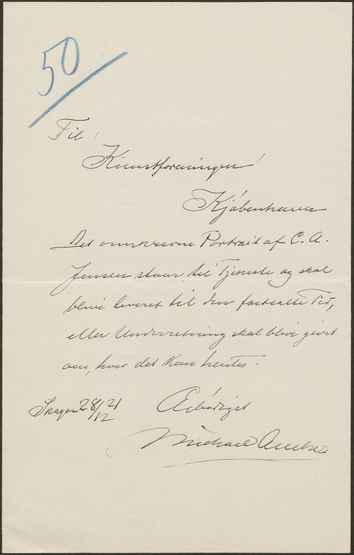 50
Til
Kunstforeningen
Kjøbenhavn
Det omskrevne Portrait af C. A.
Jensen staar til Tjeneste og skal
blive leveret til den fastsatte Tid,
eller Underretning skal blive givet
om, hvor det kan hentes.
Skagen 28/12 21 Ærbødigst
Michael Ancher